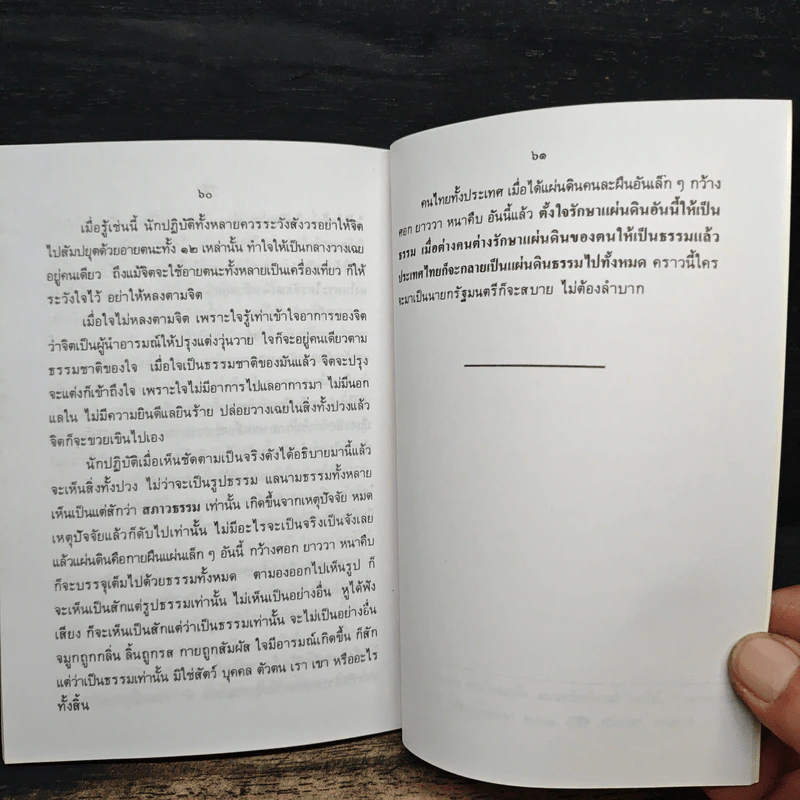 ๖๐
เมื่อรู้เช่นนี้ นักปฏิบัติทั้งหลายควรระวังสังวรอย่าให้จิต
ไปสัมปยุตด้วยอายตนะทั้ง ๑๒ เหล่านั้น ทำใจให้เป็นกลางวางเฉย
อยู่คนเดียว ถึงแม้จิตจะใช้อายตนะทั้งหลายเป็นเครื่องเที่ยว ก็ให้
ระวังใจไว้ อย่าให้หลงตามจิต
เมื่อใจไม่หลงตามจิต เพราะใจรู้เท่าเข้าใจอาการของจิต
ว่าจิตเป็นผู้นำอารมณ์ให้ปรุงแต่งวุ่นวาย ใจก็จะอยู่คนเดียวตาม
ธรรมชาติของใจ เมื่อใจเป็นธรรมชาติของมันแล้ว จิตจะปรุง
จะแต่งก็เข้าถึงใจ เพราะใจไม่มีอาการไปแลอาการมา ไม่มีนอก
แลใน ไม่มีความยินดีแลยินร้าย ปล่อยวางเฉยในสิ่งทั้งปวงแล้ว
จิตก็จะขวยเขินไปเอง
นักปฏิบัติเมื่อเห็นชัดตามเป็นจริงดังได้อธิบายมานี้แล้ว
จะเห็นสิ่งทั้งปวง ไม่ว่าจะเป็นรูปธรรม แลนามธรรมทั้งหลาย
เห็นเป็นแต่สักว่า สภาวธรรม เท่านั้น เกิดขึ้นจากเหตุปัจจัย หมด
เหตุปัจจัยแล้วก็ดับไปเท่านั้น ไม่มีอะไรจะเป็นจริงเป็นจังเลย
แล้วแผ่นดินคือกายผืนแผ่นเล็ก ๆ อันนี้ กว้างศอก ยาววา หนาคืบ
ก็จะบรรจุเต็มไปด้วยธรรมทั้งหมด ตามองออกไปเห็นรูป ก็
จะเห็นเป็นสักแต่รูปธรรมเท่านั้น ไม่เห็นเป็นอย่างอื่น หูได้ฟัง
เสียง ก็จะเห็นเป็นสักแต่ว่าเป็นธรรมเท่านั้น จะไม่เป็นอย่างอื่น
จมูกถูกกลิ่น ลิ้นถูกรส กายถูกสัมผัส ใจมีอารมณ์เกิดขึ้น ก็สัก
แต่ว่าเป็นธรรมเท่านั้น มิใช่สัตว์ บุคคล ตัวตน เรา เขา หรืออะไร
ทั้งสิ้น
๖๑
คนไทยทั้งประเทศ เมื่อได้แผ่นดินคนละผืนอันเล็ก ๆ กว้าง
ศอก ยาววา หนาคืบ อันนี้แล้ว ตั้งใจรักษาแผ่นดินอันนี้ให้เป็น
ธรรม เมื่อต่างคนต่างรักษาแผ่นดินของตนให้เป็นธรรมแล้ว
ประเทศไทยก็จะกลายเป็นแผ่นดินธรรมไปทั้งหมด คราวนี้ใคร
จะมาเป็นนายกรัฐมนตรีก็จะสบาย ไม่ต้องลำบาก